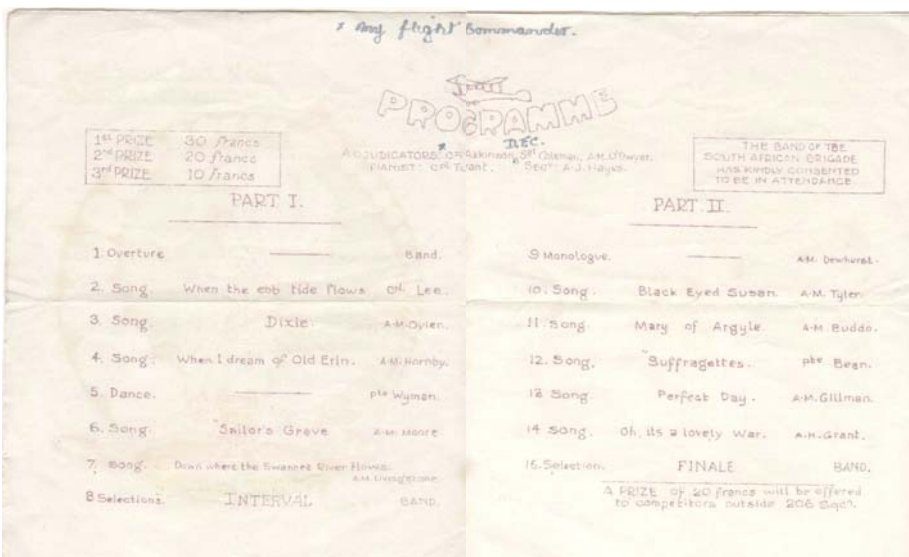 x my flight Commander.
PROGRAMME
1st PRIZE 30 francs
2nd PRIZE 20 francs
3rd PRIZE 10 francs
x DEC.
ADJUDICATORS: Atkinson, Sgt Coleman, A.M. O'Dwyer.
PIANIST: Cpl Sect: A.J. Hayes.
THE BAND OF THE
SOUTH AFRICAN BRIGADE
HAS KINDLY CONSENTED
TO BE IN ATTENDANCE
PART I.
1. Overture ——— Band.
2. Song When the ebb tide flows Cpl. Lee.
3. Song. Dixie. A.M.
4. Song. When I dream of Old Erin. A.M. Hornby.
5. Dance. ——— pte Wyman.
6. Song. "Sailor's Grave A.M. Moore
7. Song. Down where the Swanee River Flows.
A.M. Livingstone
8 Selections. INTERVAL BAND.
PART II.
9 Monologue. ——— A.M. Dewhurst.
10. Song. Black Eyed Susan. A.M. Tyler.
11. Song Mary of Argyle. A.M. Buddo.
12. Song. "Suffragettes. pte Bean.
13 Song. Perfect Day. A.M. Gillman.
14 Song. Oh, its a lovely War. A.M. Grant.
15. Selection. FINALE BAND.
A PRIZE of 20 francs will be offered
to competitors outside 206 Sqdn.